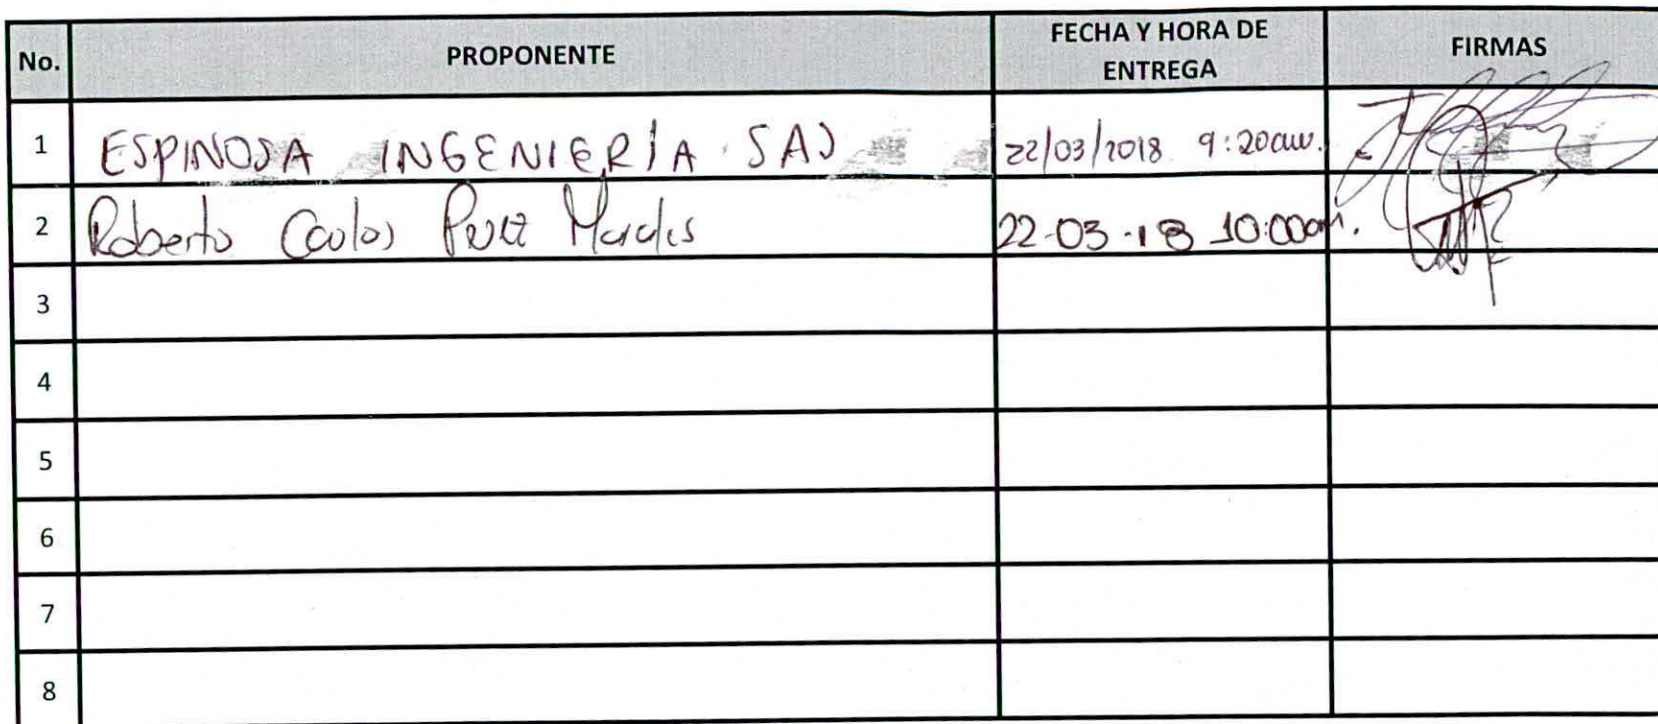 No. PROPONENTE FECHA Y HORA DE ENTREGA FIRMAS
1 ESPINOSA INGENIERÍA SAS 22/03/2018 9:20am.
2 Roberto Carlos Perez Morales 22-03-18 10:00am.
3
4
5
6
7
8